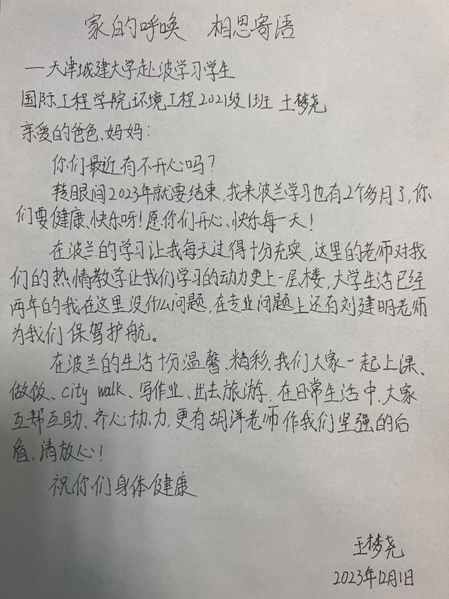 家的呼唤 相思寄语
—天津城建大学赴波学习学生
国际工程学院环境工程2021级1班 王梦尧
亲爱的爸爸、妈妈:
你们最近有不开心吗?
转眼间2023年就要结束,我来波兰学习也有2个多月了,你
们要健康、快乐呀!愿你们开心、快乐每一天!
在波兰的学习让我每天过得十分充实,这里的老师对我
们的热情教学让我们学习的动力更上一层楼,大学生活已经
两年的我在这里没什么问题,在专业问题上还有刘建明老师
为我们保驾护航。
在波兰的生活十分温馨、精彩,我们大家一起上课、
做饭、city walk、写作业、出去旅游,在日常生活中,大家
互帮互助、齐心协力,更有胡洋老师作我们坚强的后
盾,请放心!
祝你们身体健康
王梦尧
2023年12月1日